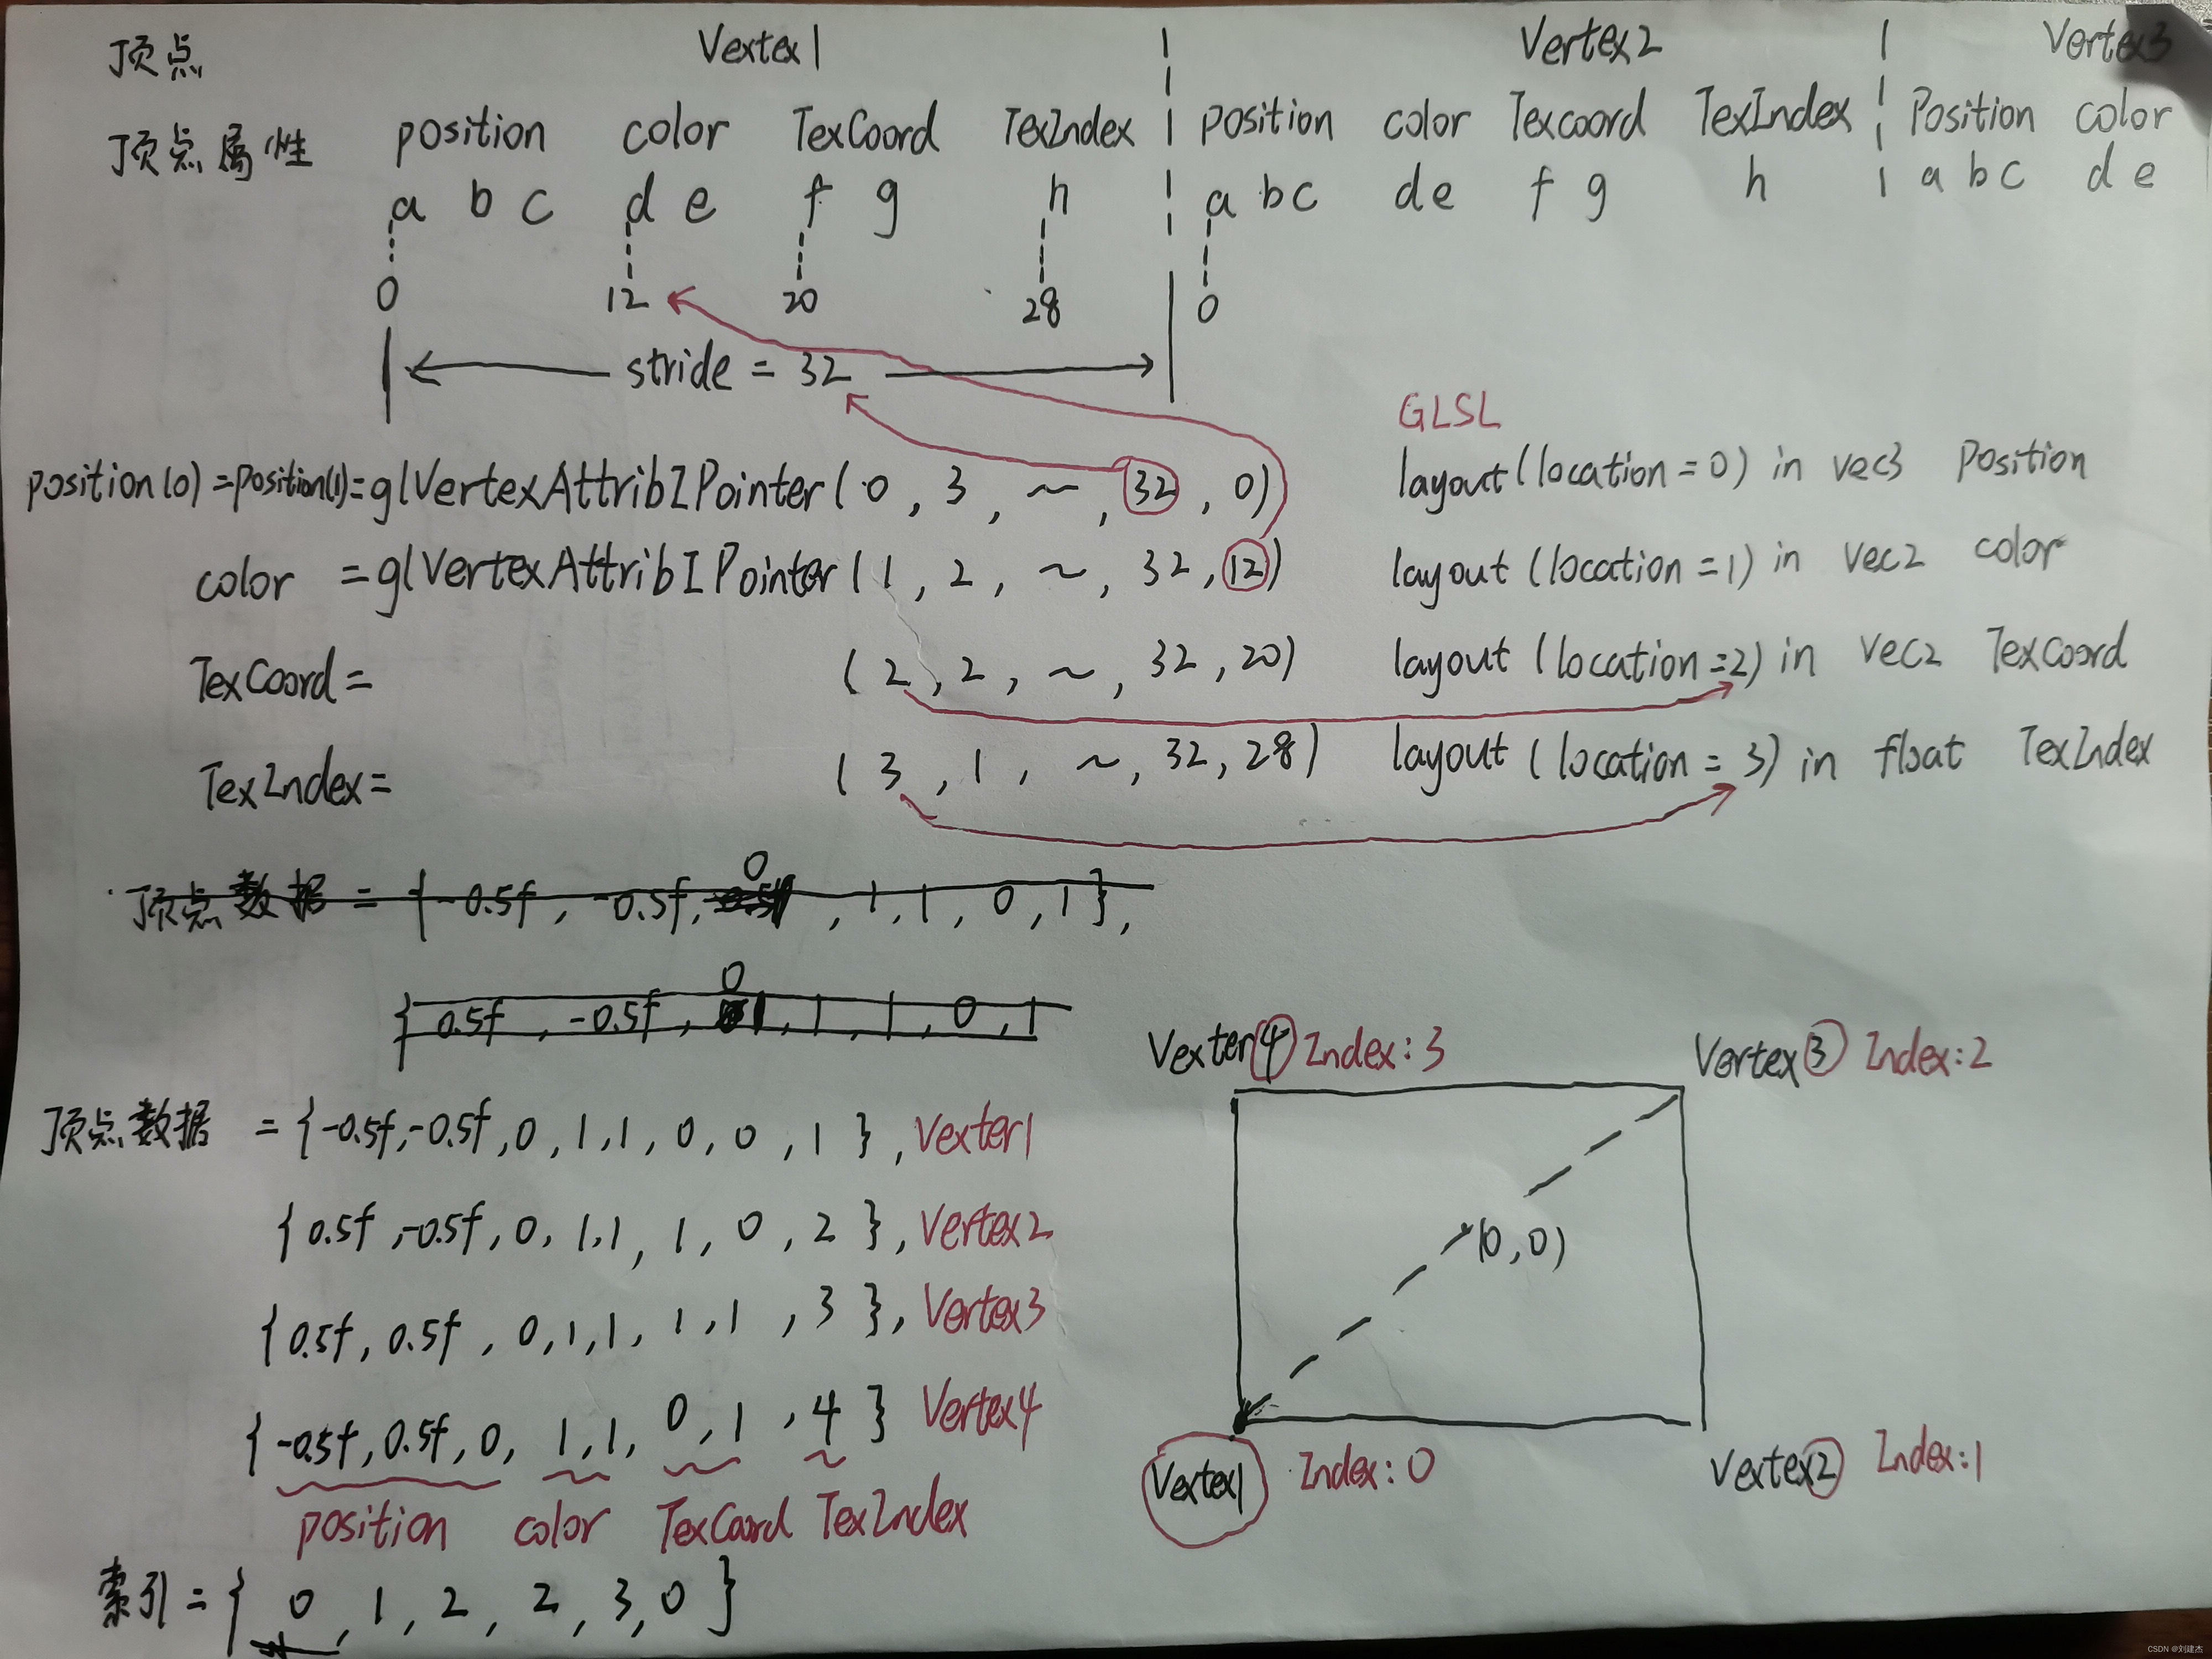 顶点 Vextex1 Vertex2 Vertex3
顶点属性 position color TexCoord TexIndex position color Texcoord TexIndex Position color
a b c d e f g h a b c d e f g h a b c d e
0 12 20 28 0
stride = 32
GLSL
position(0)=position(1)=glVertexAttribIPointer(0, 3, ~, 32, 0) layout(location=0) in vec3 position
color =glVertexAttribIPointer(1, 2, ~, 32, 12) layout (location=1) in vec2 color
TexCoord= (2, 2, ~, 32, 20) layout (location=2) in vec2 TexCoord
TexIndex= (3, 1, ~, 32, 28) layout (location=3) in float TexIndex
0
顶点数据 = {-0.5f, -0.5f, , 1, 1, 0, 1},
0
{0.5f, -0.5f, , 1, 1, 0, 1
Vexter4 Index:3 Vertex3 Index:2
顶点数据 = {-0.5f,-0.5f,0,1,1,0,0,1}, Vexter1
{0.5f,-0.5f,0,1,1,1,0,2}, Vertex2
(0,0)
{0.5f,0.5f,0,1,1,1,1,3}, Vertex3
{-0.5f,0.5f,0,1,1,0,1,4} Vertex4
Vextex1 Index:0 Vextex2 Index:1
position color TexCoord TexIndex
索引={0,1,2,2,3,0}
CSDN @刘建杰